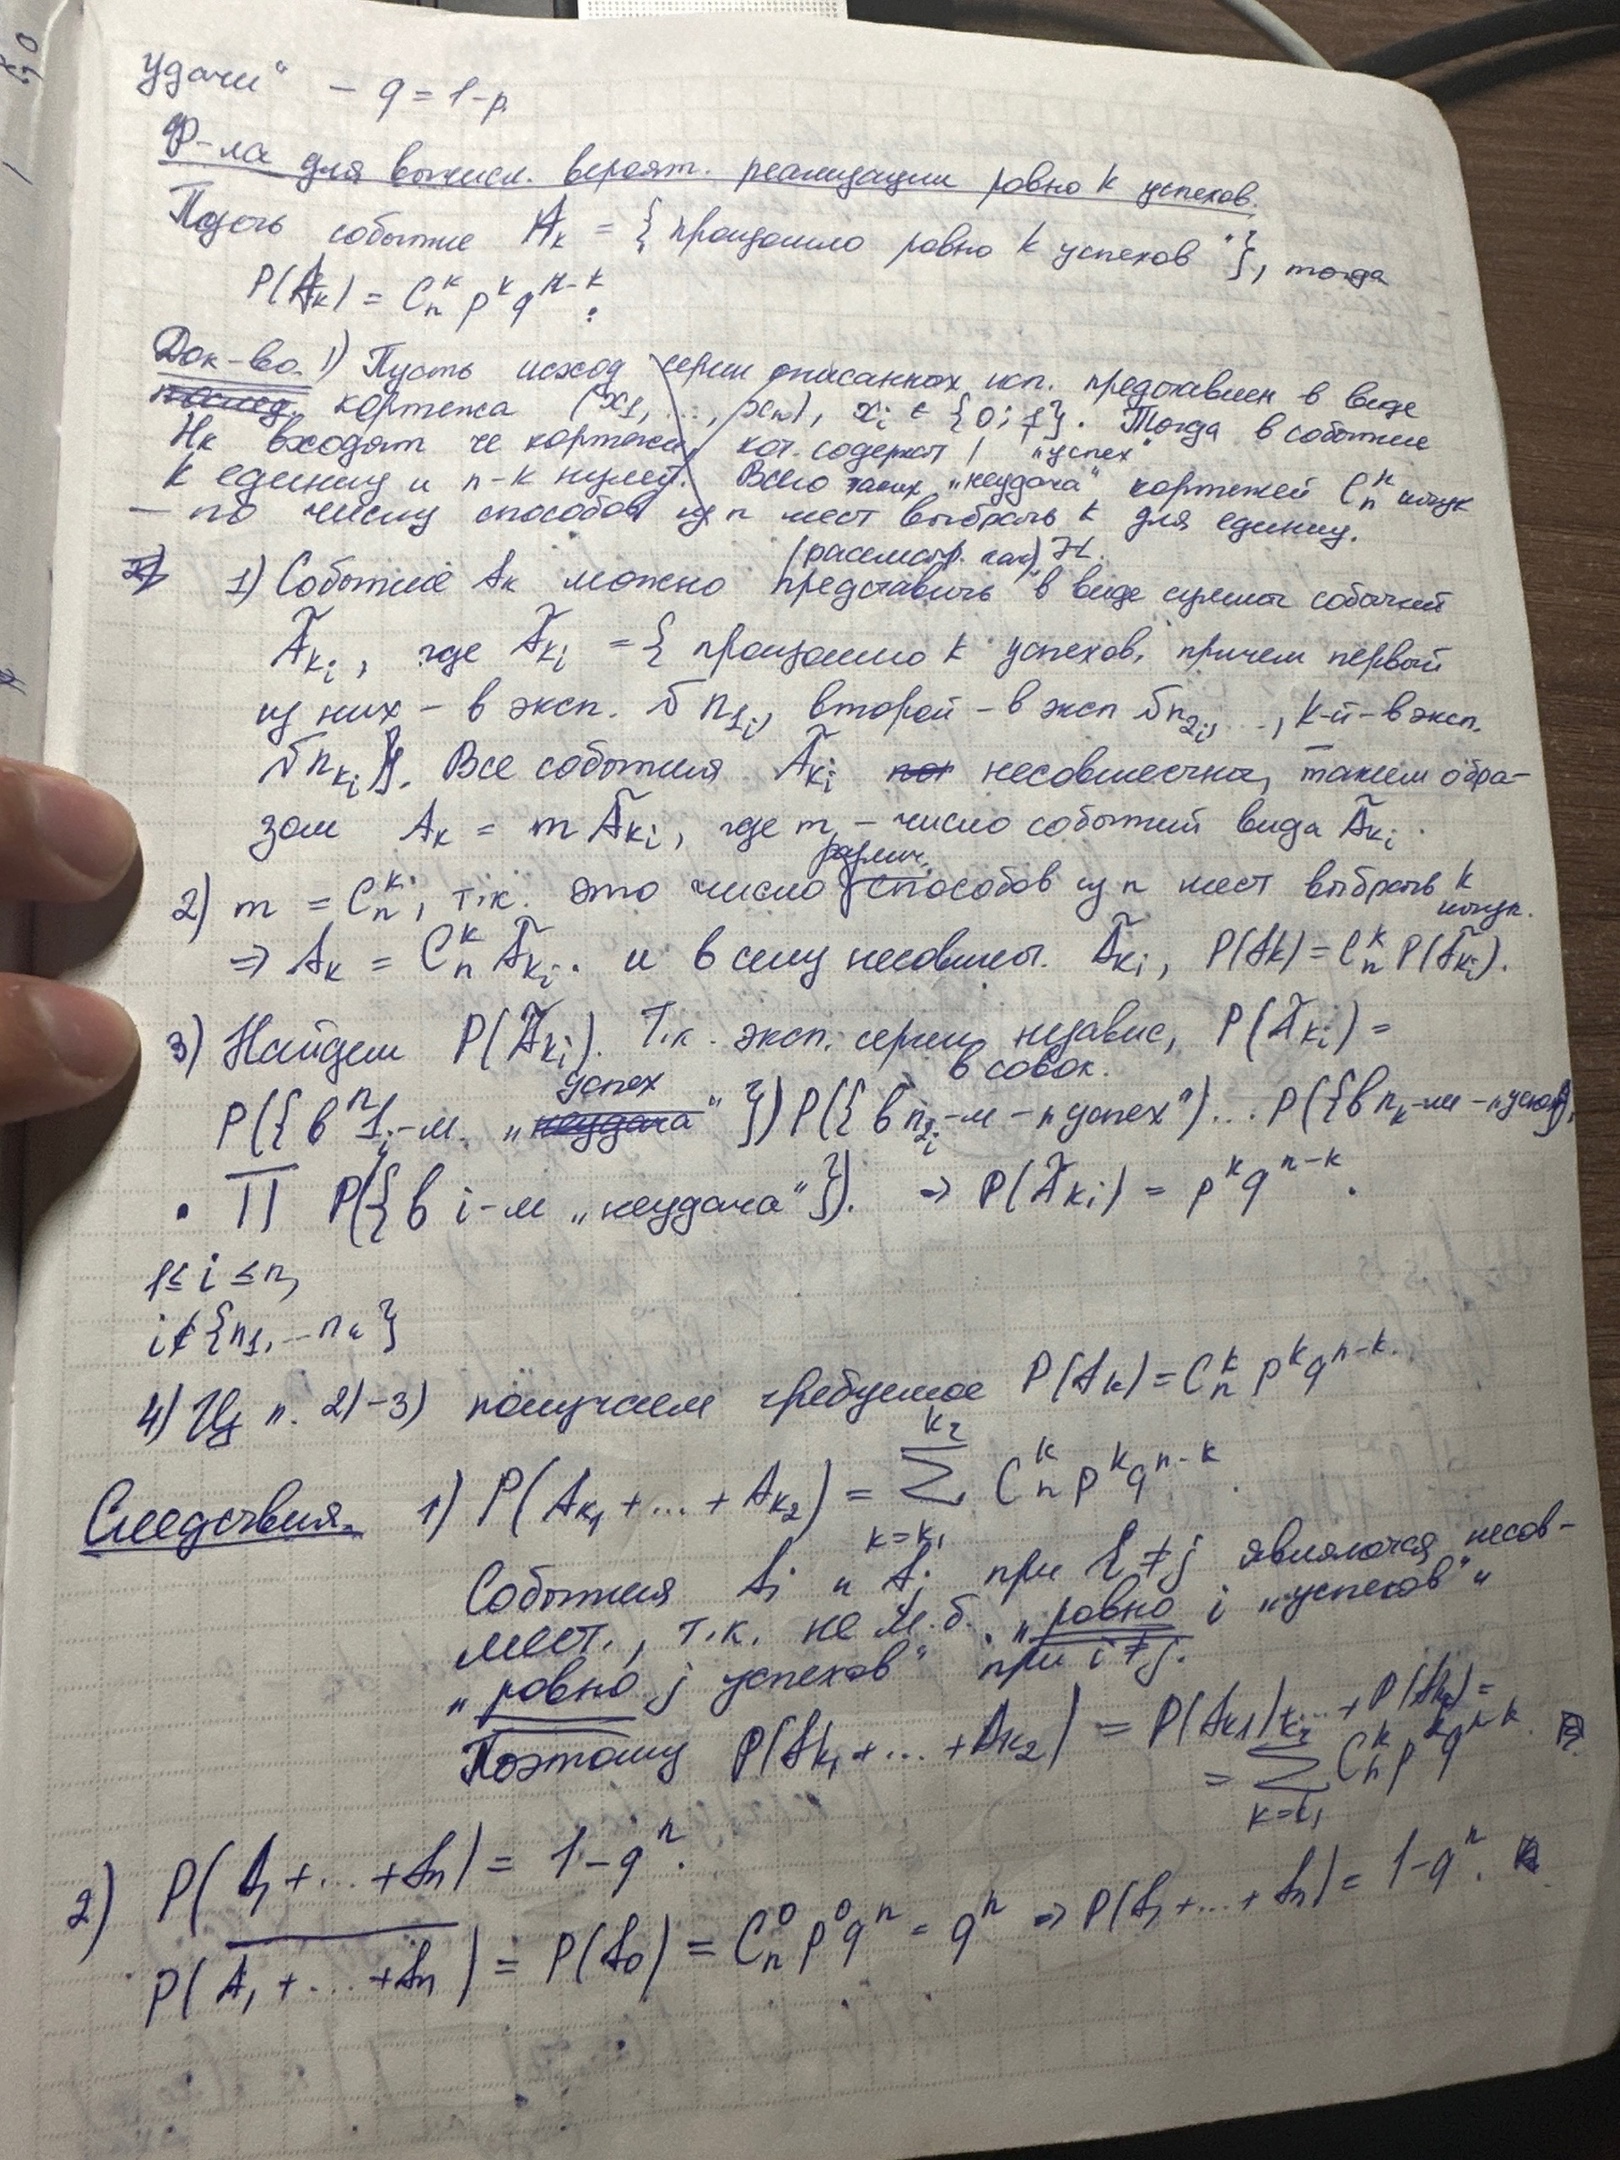 удачи" – q = 1-p.
Ф-ла для вычисл. вероят. реализации ровно k успехов.
Пусть событие A_k = {"произошло ровно k успехов"}, тогда
P(A_k) = C_n^k p^k q^{n-k}.
Док-во. 1) Пусть исход серии описанных исп. представлен в виде
кортежа (x_1, ..., x_n), x_i ∈ {0; 1}. Тогда в событие
A_k входят те кортежи, кот. содержат "успех"
k единиц и n-k нулей. Всего таких "неудача" кортежей C_n^k штук
– по числу способов из n мест выбрать k для единиц.
(рассмотр. как)
1) Событие A_k можно представить в виде суммы событий
Ã_{k_i}, где Ã_{k_i} = { произошло k успехов, причем первый
из них – в эксп. № n_{1_i}, второй – в эксп № n_{2_i}, ..., k-й – в эксп.
№ n_{k_i}}. Все события Ã_{k_i} несовместны, таким обра-
зом A_k = m Ã_{k_i}, где m – число событий вида Ã_{k_i}.
различ.
2) m = C_n^k, т.к. это число способов из n мест выбрать k
штук.
⇒ A_k = C_n^k Ã_{k_i}. и в силу несовмест. Ã_{k_i}, P(A_k) = C_n^k P(Ã_{k_i}).
3) Найдем P(Ã_{k_i}). Т.к. эксп. серии независ, P(Ã_{k_i}) =
в совок.
успех
P({в n_{1_i}-м. "неудача"}) P({в n_{2_i}-м – "успех") ... P({в n_k-м – "успех"}).
· ∏ P({в i-м "неудача"}). ⇒ P(Ã_{k_i}) = p^k q^{n-k}.
1 ≤ i ≤ n,
i ∉ {n_1, ... n_k}
4) Из п. 2)-3) получаем требуемое P(A_k) = C_n^k p^k q^{n-k}.
Следствия. 1) P(A_{k_1} + ... + A_{k_2}) = ∑_{k=k_1}^{k_2} C_n^k p^k q^{n-k}.
События A_i и A_j при i ≠ j являются несов-
мест., т.к. не м.б. "ровно i "успехов" и
"ровно j успехов" при i ≠ j.
Поэтому P(A_{k_1} + ... + A_{k_2}) = P(A_{k_1}) + ... + P(A_{k_2}) =
= ∑_{k=k_1}^{k_2} C_n^k p^k q^{n-k}.
2) P(A_1 + ... + A_n) = 1 - q^n.
P(\overline{A_1 + ... + A_n}) = P(A_0) = C_n^0 p^0 q^n = q^n ⇒ P(A_1 + ... + A_n) = 1 - q^n.